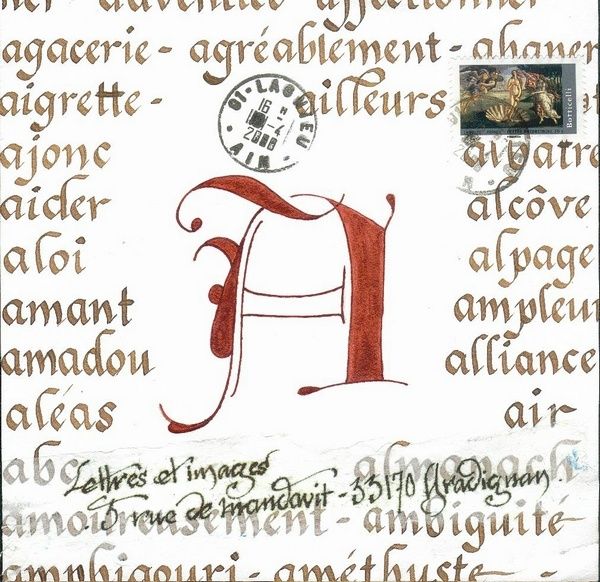 affectionner
agacerie - agréablement - ahaner
01-LAGNIEU
16 H
-4
AIN
Botticelli
aigrette - ailleurs
ajonc
aider alcôve
aloi alpage
A
amant ampleur
amadou alliance
aléas air
abc almanach
Lettres et images
5 rue de mandavit - 33170 Gradignan
amoureusement - ambiguité
amphigouri - améthyste -